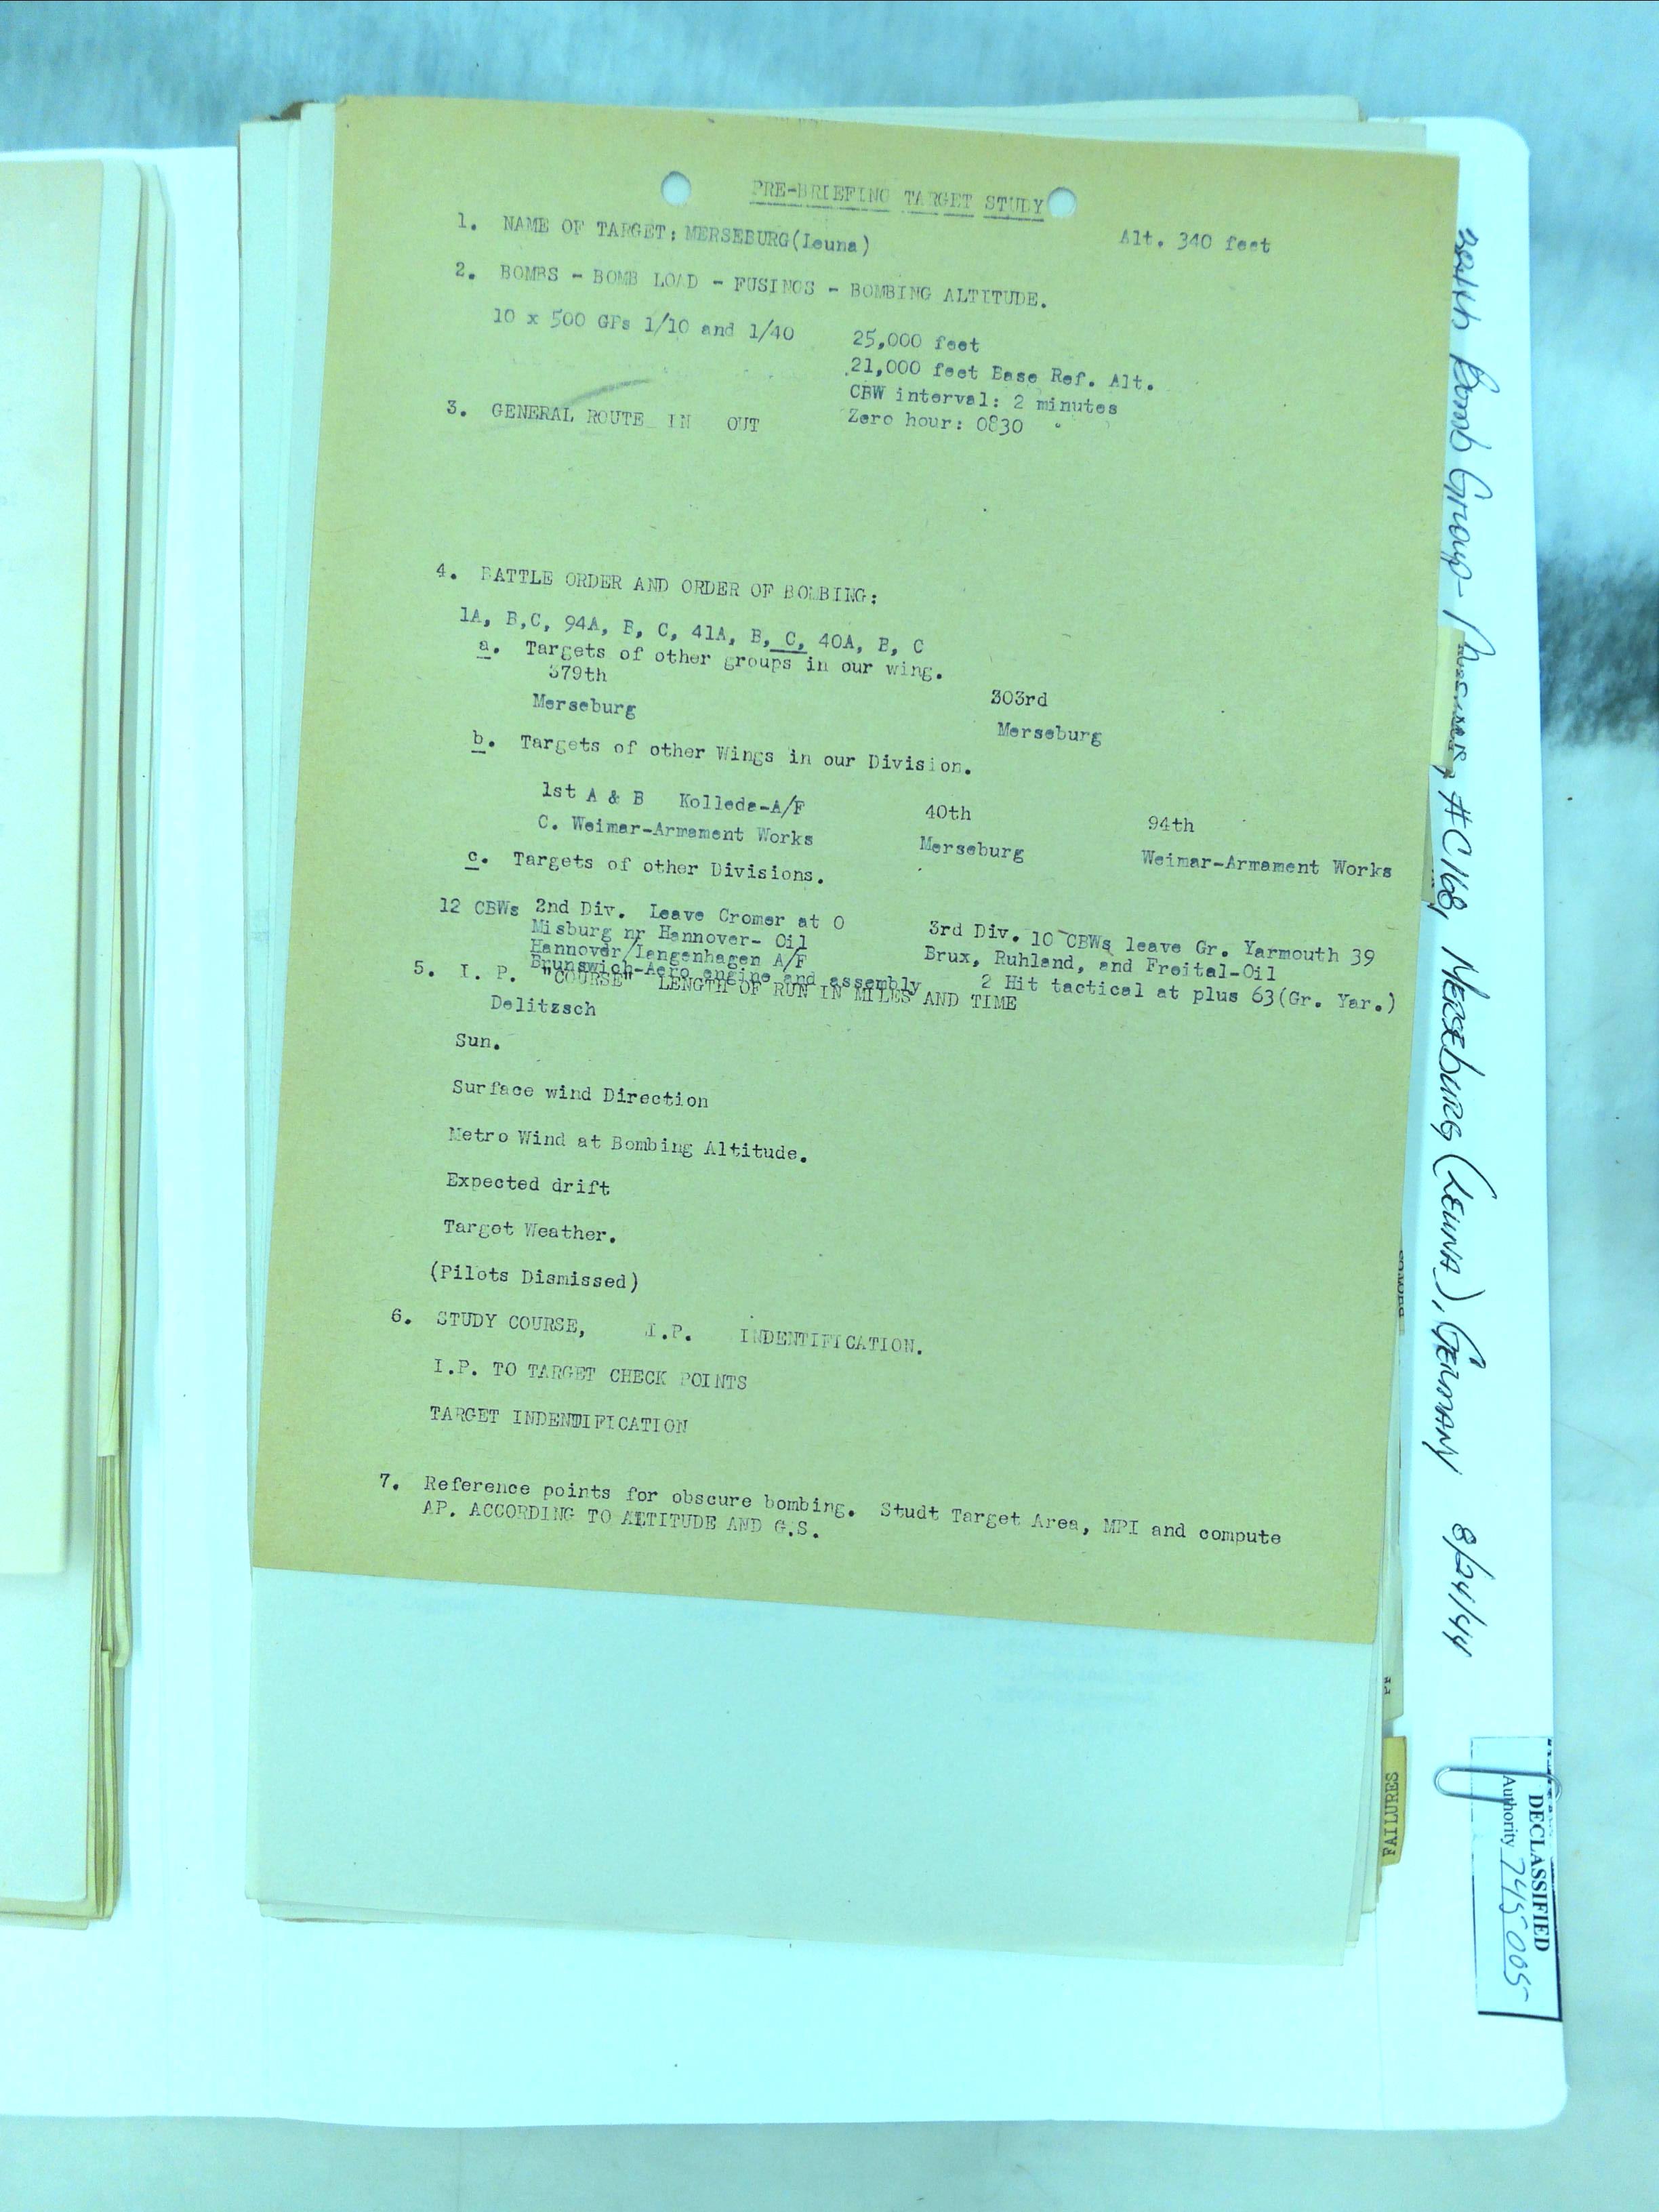 PRE-BRIEFING TARGET STUDY
1. NAME OF TARGET: MERSEBURG(Leuna) Alt. 340 feet
2. BOMBS - BOMB LOAD - FUSINGS - BOMBING ALTITUDE.
10 x 500 GPs 1/10 and 1/40 25,000 feet
21,000 feet Base Ref. Alt.
CBW interval: 2 minutes
3. GENERAL ROUTE IN OUT Zero hour: 0830
4. BATTLE ORDER AND ORDER OF BOMBING:
1A, B,C, 94A, B, C, 41A, B, C, 40A, B, C
a. Targets of other groups in our wing.
379th 303rd
Merseburg Merseburg
b. Targets of other Wings in our Division.
1st A & B Kolleda-A/F 40th 94th
C. Weimar-Armament Works Merseburg Weimar-Armament Works
c. Targets of other Divisions.
12 CBWs 2nd Div. Leave Cromer at 0 3rd Div. 10 CBWs leave Gr. Yarmouth 39
Misburg nr Hannover- Oil Brux, Ruhland, and Freital-Oil
Hannover/Langenhagen A/F 2 Hit tactical at plus 63(Gr. Yar.)
Brunswich-Aero engine and assembly
5. I. P. "COURSE" LENGTH OF RUN IN MILES AND TIME
Delitzsch
Sun.
Surface wind Direction
Metro Wind at Bombing Altitude.
Expected drift
Targot Weather.
(Pilots Dismissed)
6. STUDY COURSE, I.P. INDENTIFICATION.
I.P. TO TARGET CHECK POINTS
TARGET INDENTIFICATION
7. Reference points for obscure bombing. Studt Target Area, MPI and compute
AP. ACCORDING TO ALTITUDE AND G.S.
384th Bomb Group- #C168, MERSEBURG (LEUNA), GERMANY 8/24/44
FAILURES
DECLASSIFIED
Authority 745005